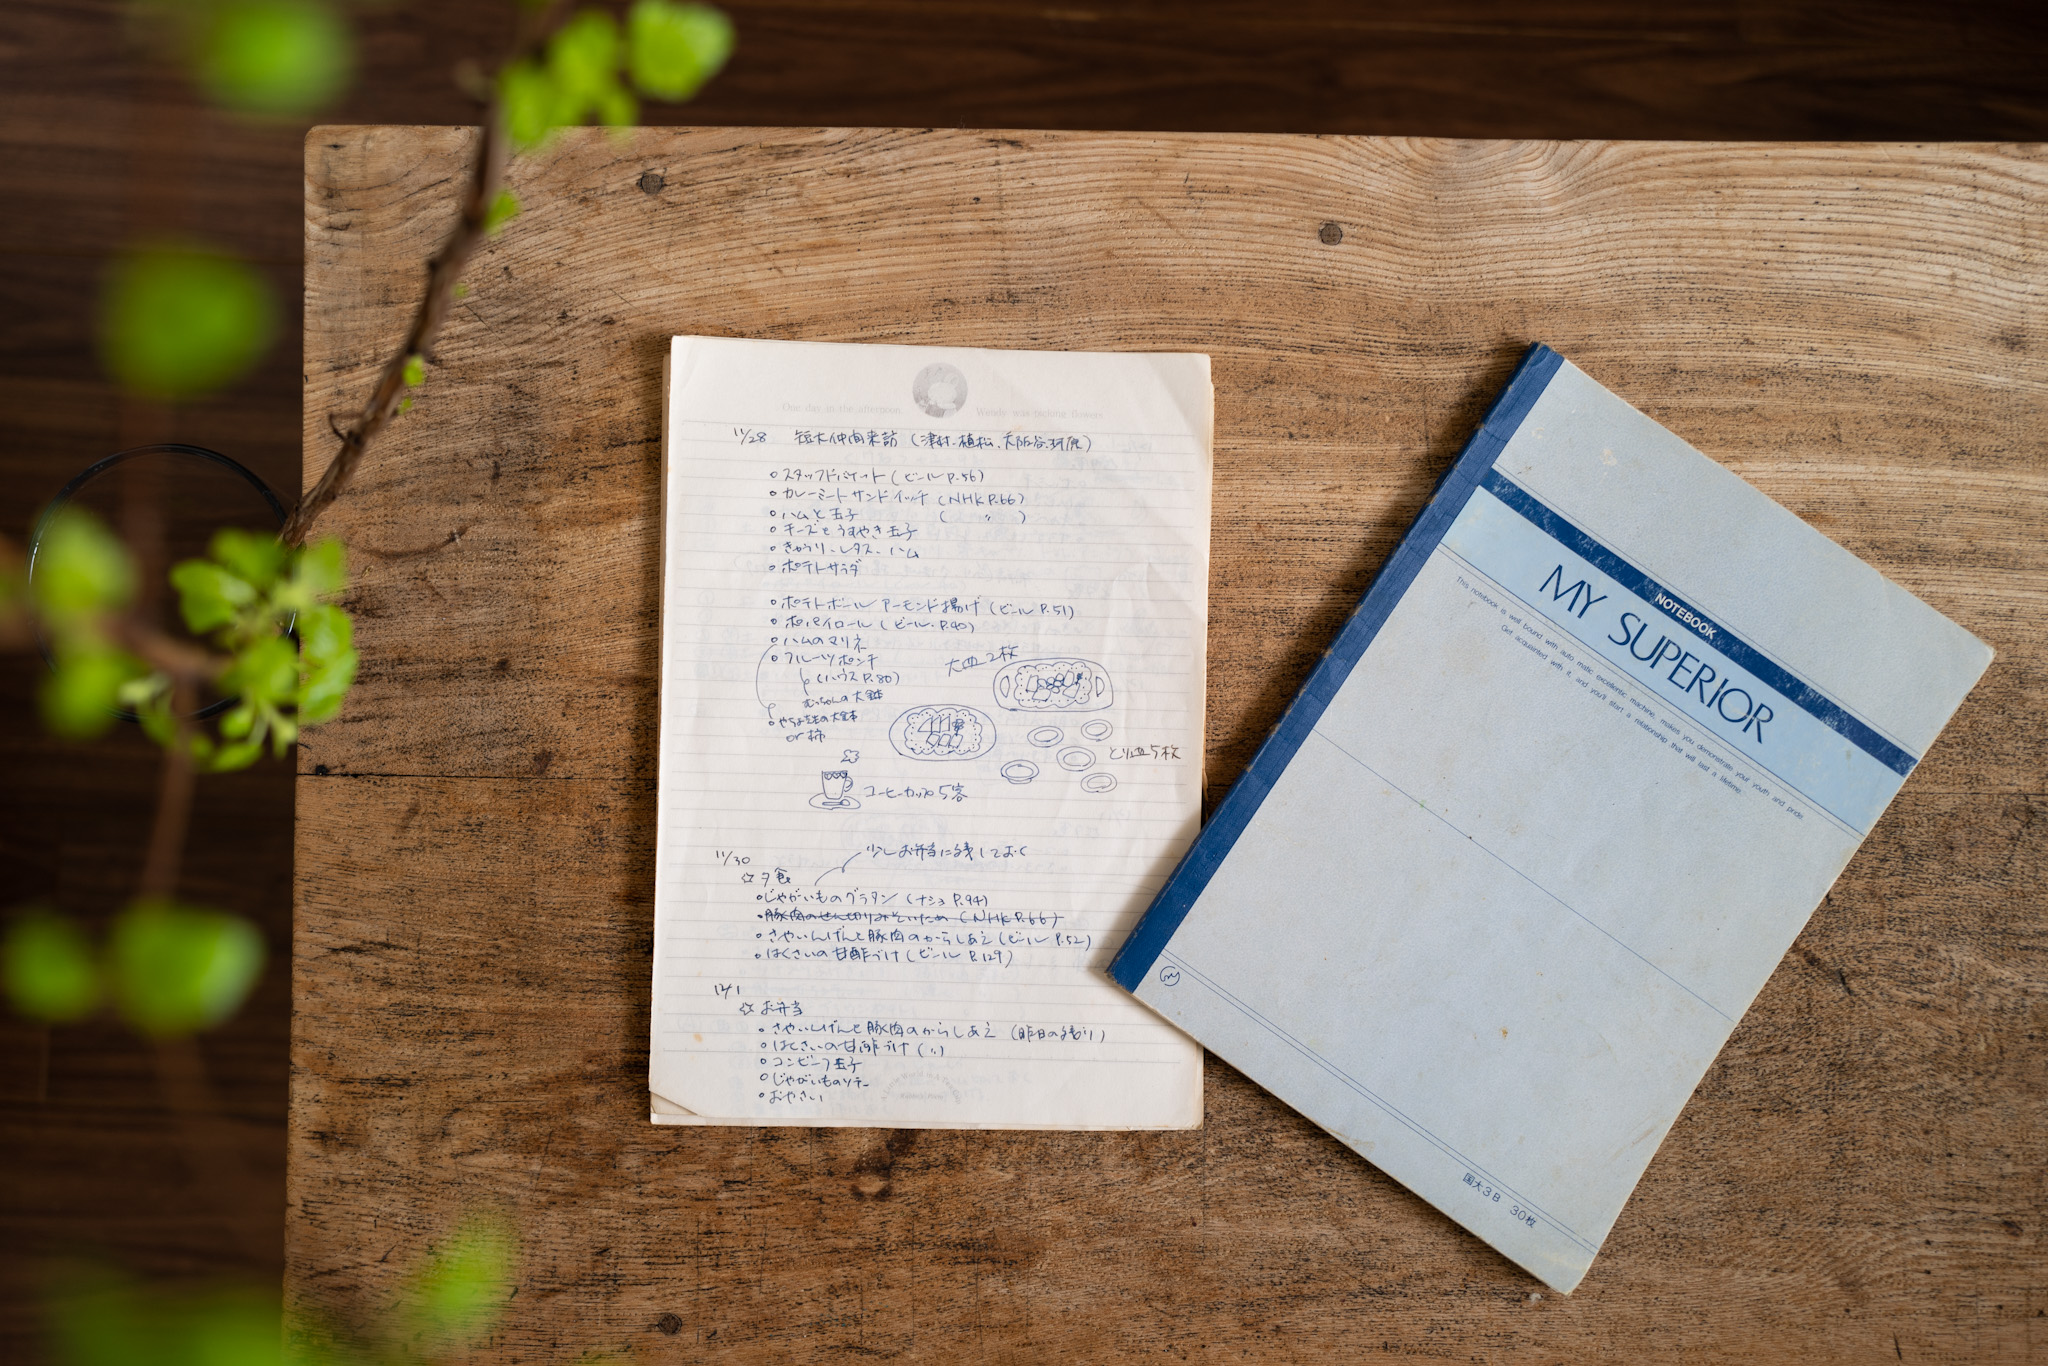 One day in the afternoon Wendy was picking flowers
11/28 短大仲間来訪 (津村、植松、大阪谷、河原)
○スタッフドバゲット (ビール P.56)
○カレーミートサンドイッチ (NHK P.66)
○ハムと玉子 ( 〃 )
○チーズとうすやき玉子
○きゅうり・レタス・ハム
○ポテトサラダ
○ポテトボールアーモンド揚げ (ビール P.51)
○ポパイロール (ビール P.90)
○ハムのマリネ
○フルーツポンチ
(ハウス P.80)
の大鉢
の大鉢
or 柿
大皿2枚
とり皿5枚
コーヒーカップ5客
11/30
少しお弁当に残しておく
☆夕食
○じゃがいものグラタン (ナショ P.94)
○豚肉のせん切りみそいため (NHK P.66)
○さやいんげんと豚肉のからしあえ (ビール P.52)
○はくさいの甘酢づけ (ビール P.129)
12/1
☆お弁当
○さやいんげんと豚肉のからしあえ (昨日の残り)
○はくさいの甘酢づけ (〃)
○コンビーフ玉子
○じゃがいものソテー
○おやさい
NOTEBOOK
MY SUPERIOR
This notebook is well bound with auto matic excellentic machine, makes you demonstrate your youth and pride.
Get acquainted with it, and you'll start a relationship that will last a lifetime.
my
国大3日 30枚